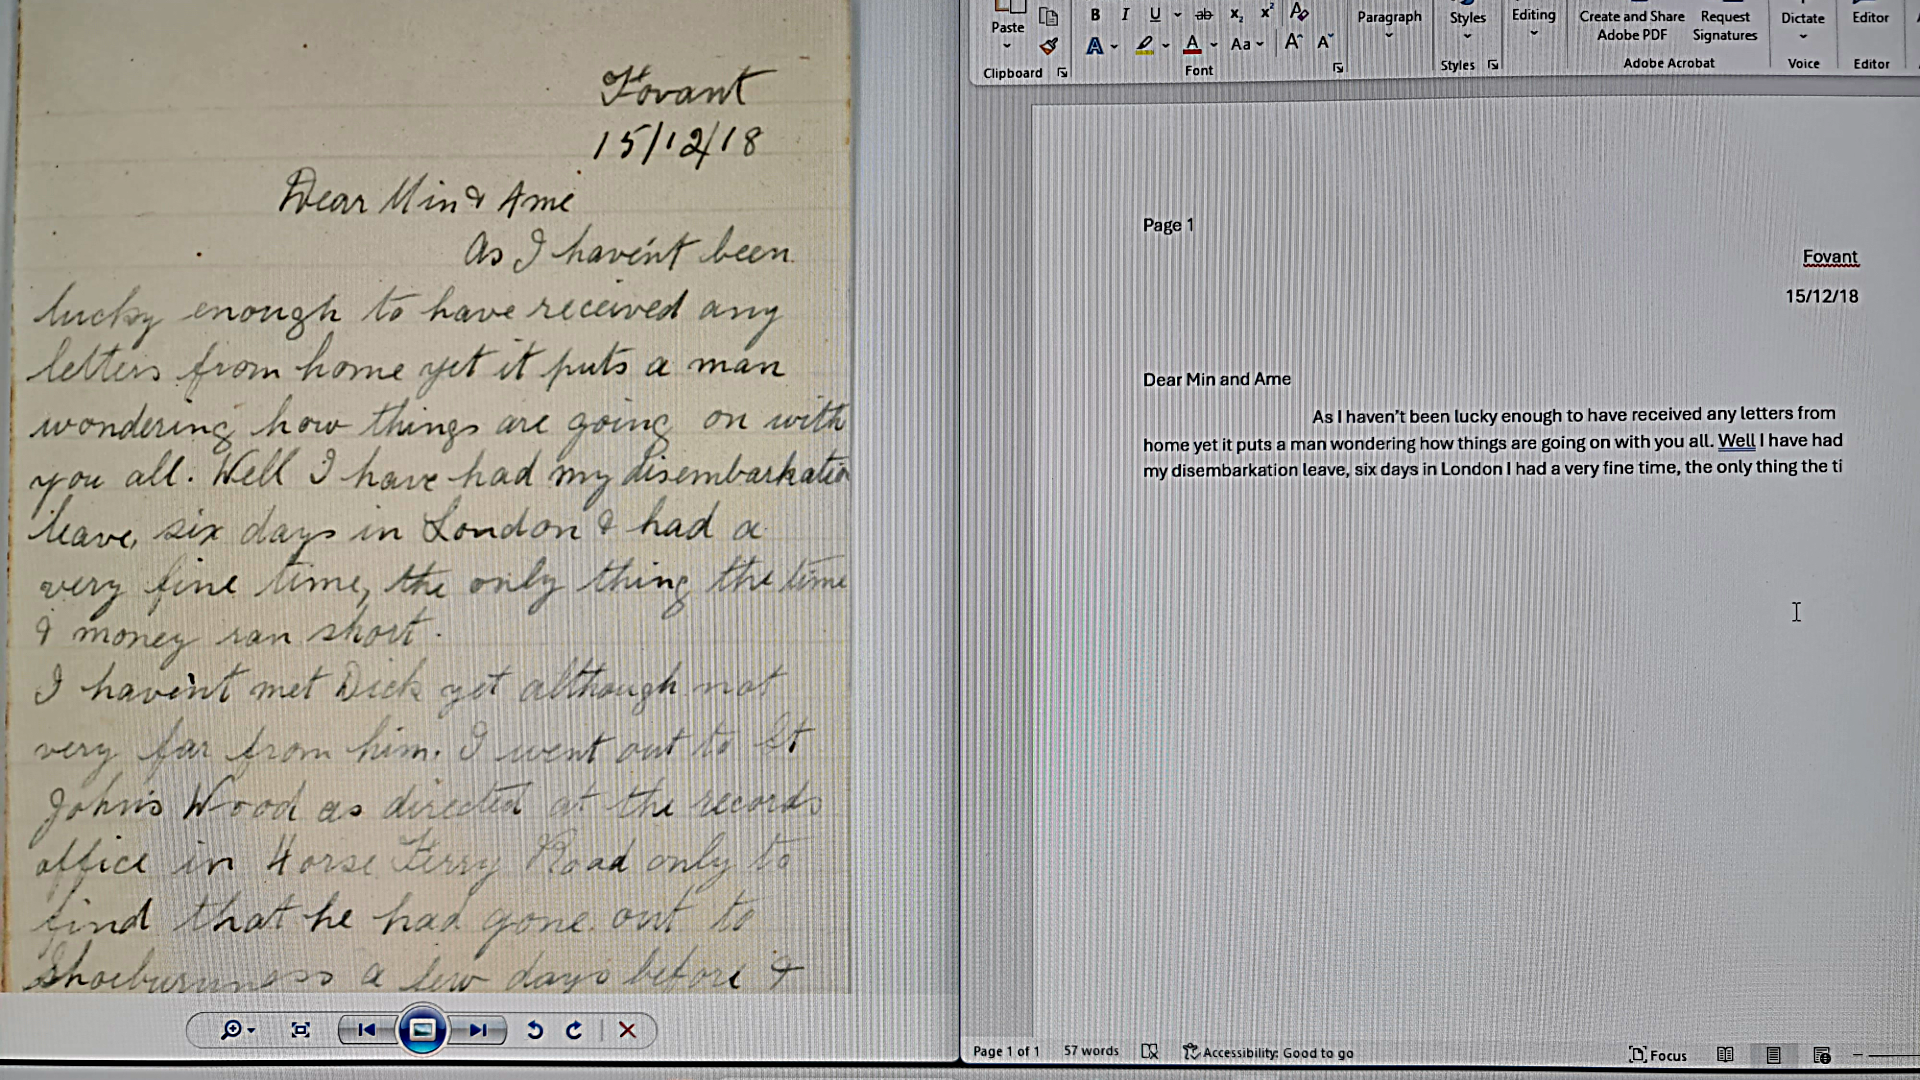 Fovant
15/12/18
Dear Min & Ame
As I haven't been
lucky enough to have received any
letters from home yet it puts a man
wondering how things are going on with
you all. Well I have had my disembarkation
leave, six days in London & had a
very fine time, the only thing the time
& money ran short.
I haven't met Dick yet although not
very far from him. I went out to St
John's Wood as directed at the records
office in Horse Ferry Road only to
find that he had gone out to
Shoeburyness a few days before &
Paste
Clipboard
B I U ab x₂ x²
A A Aa A A
Font
Paragraph
Styles
Styles
Editing
Create and Share
Adobe PDF
Request
Signatures
Adobe Acrobat
Dictate
Voice
Editor
Editor
Page 1
Fovant
15/12/18
Dear Min and Ame
As I haven't been lucky enough to have received any letters from
home yet it puts a man wondering how things are going on with you all. Well I have had
my disembarkation leave, six days in London I had a very fine time, the only thing the ti
Page 1 of 1 57 words Accessibility: Good to go Focus